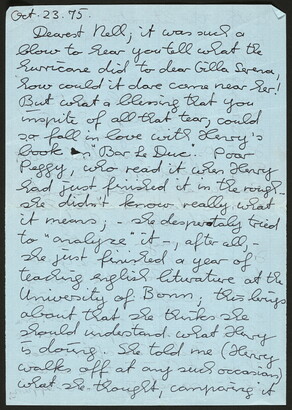 Oct. 23. 75.
Dearest Nell; it was such a
blow to hear you tell what the
hurricane did to dear Gilla Serena,
how could it dare come near her!
But what a blessing that you
inspite of all that tear, could
so fall in love with Henry's
book "Bar Le Duc". Poor
Peggy, who read it when Henry
had just finished it in the rough -
she didn't know really what
it means; - she desperately tried
to "analyze" it -, after all, -
she just finished a year of
teaching english literature at the
University of Bonn; this brings
about that she thinks she
should understand what Henry
is doing. She told me (Henry
walks off at any such occasion)
what she thought, comparing it